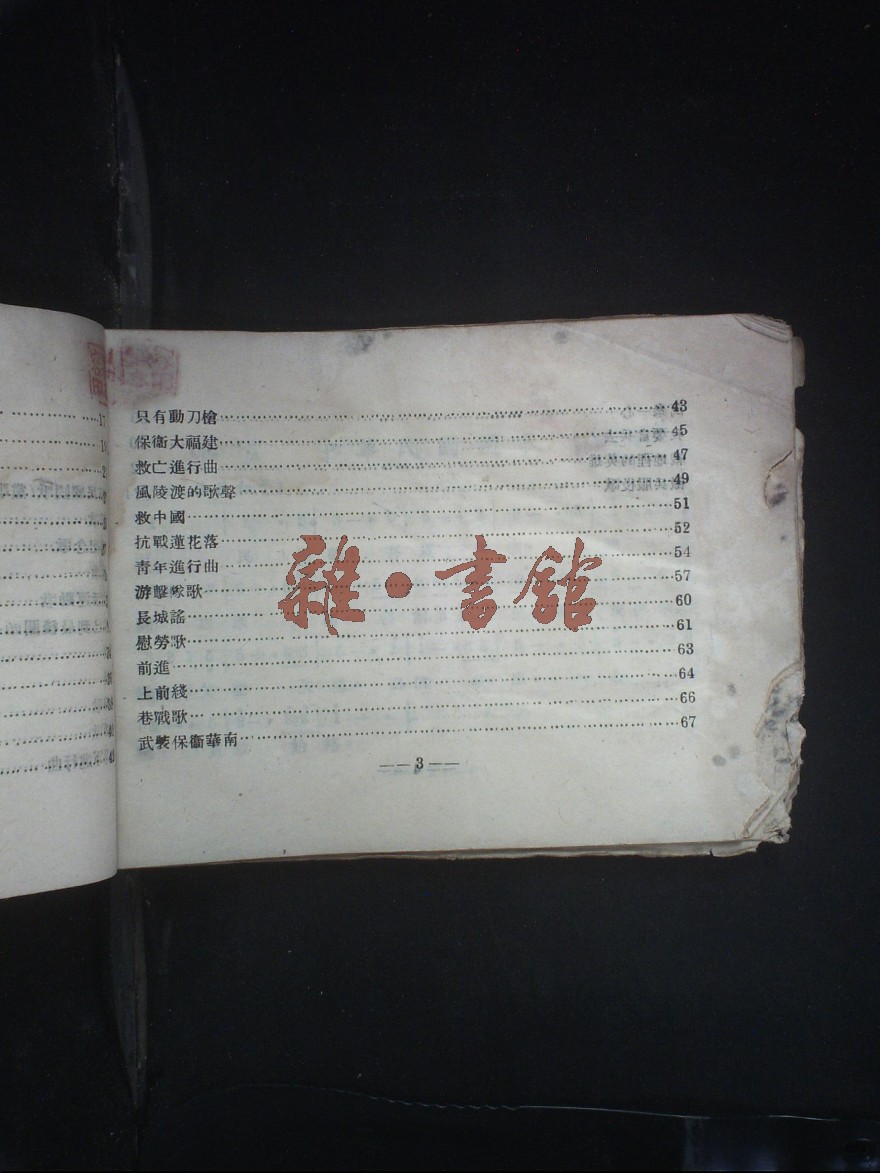 只有動刀槍 43
保衛大福建 45
救亡進行曲 47
風陵渡的歌聲 49
救中國 51
抗戰蓮花落 52
青年進行曲 54
游擊隊歌 57
長城謠 60
慰勞歌 61
前進 63
上前綫 64
巷戰歌 66
武裝保衛華南 67
——3——
雜·書館